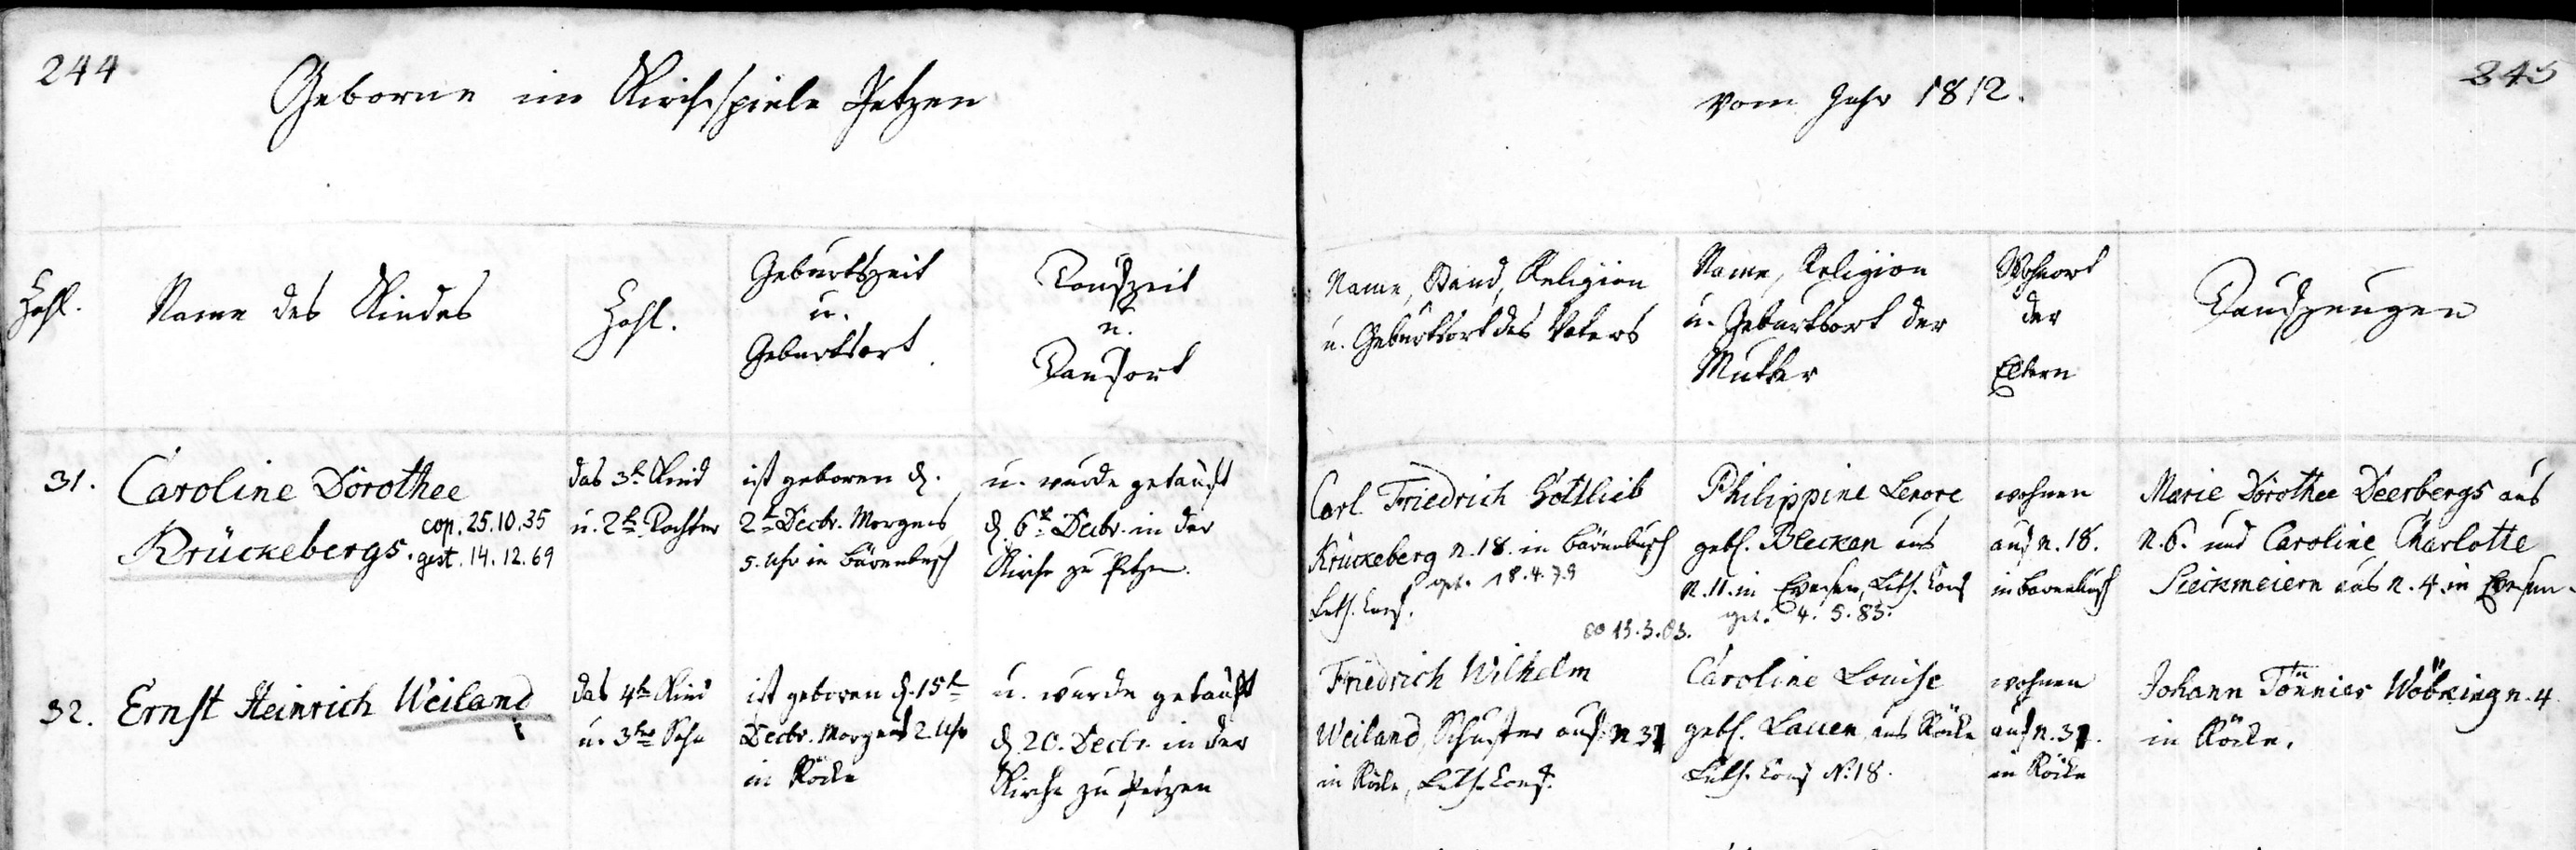 244
Geborne im Kirchspiele Petzen
Zahl.
Name des Kindes
Zahl.
Geburtszeit
u.
Geburtsort.
Taufzeit
u.
Taufort
31.
Caroline Dorothee
cop. 25.10.35
Krückebergs. gest. 14.12.69
das 3te Kind
u. 2te Tochter
ist geboren d.
2te Decbr. Morgens
5. Uhr in Bärenbusch
u. wurde getauft
d. 6te Decbr. in der
Kirche zu Petzen.
32.
Ernst Heinrich Weiland
das 4te Kind
u. 3te Sohn
ist geboren d. 15te
Decbr. Morgens 2 Uhr
in Röcke
u. wurde getauft
d. 20. Decbr. in der
Kirche zu Petzen
245
vom Jahr 1812.
Name, Stand, Religion
u. Geburtsort des Vaters
Name, Religion
u. Geburtsort der
Mutter
Wohnort
der
Eltern
Taufzeugen
Carl Friedrich Gottlieb
Krückeberg n. 18. in Bärenbusch
gest. 18.4.79
Luth. Conf.
∞ 13.3.03.
Philippine Lenore
gebh. Bleckan aus
n. 11. in Evesen, Luth. Conf
4. 5. 83.
wohnen
auf n. 18.
in Bärenbusch
Marie Dorothee Deerbergs aus
n. 6. und Caroline Charlotte
Sieckmeiern aus n. 4 in Evesen.
Friedrich Wilhelm
Weiland, Schuster auf n 31
in Röcke, Luth. Conf.
Caroline Louise
gebh. Lauen aus Röcke
Luth. Conf N. 18.
wohnen
auf n. 31.
in Röcke
Johann Tönnies Wöbking n. 4
in Röcke.